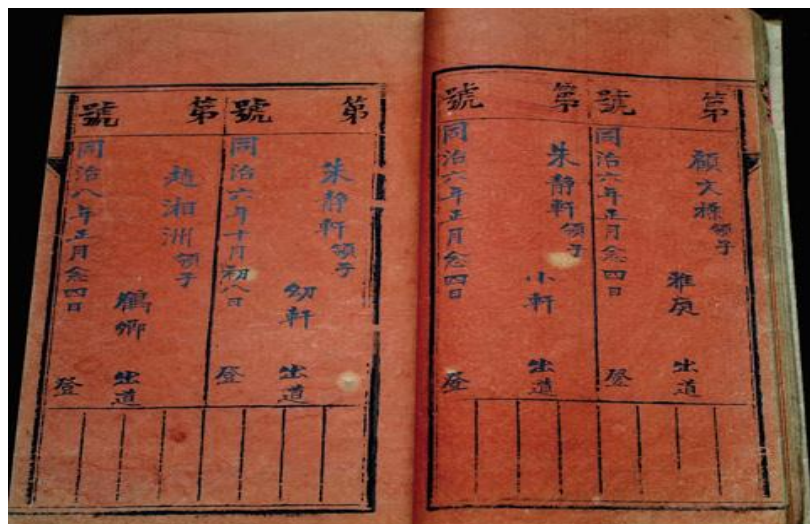 第 號
顧文標領子 雅庭 出道
同治六年正月念四日 登
第 號
朱静軒領子 小軒 出道
同治六年正月念四日 登
第 號
朱静軒領子 幼軒 出道
同治六年十月初八日 登
第 號
趙湘洲領子 鶴卿 出道
同治八年正月念四日 登